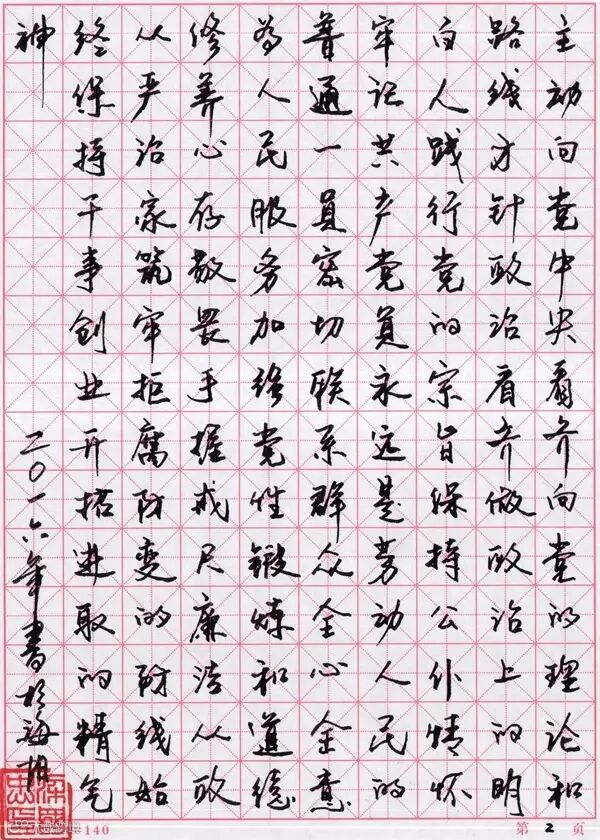 主动向党中央看齐向党的理论和
路线方针政治看齐做政治上的明
白人践行党的宗旨保持公仆情怀
牢记共产党员永远是劳动人民的
普通一员密切联系群众全心全意
为人民服务加强党性锻炼和道德
修养心存敬畏手握戒尺廉洁从政
从严治家筑牢拒腐防变的防线始
终保持干事创业开拓进取的精气
神
二〇一六年书于海
140
第2页